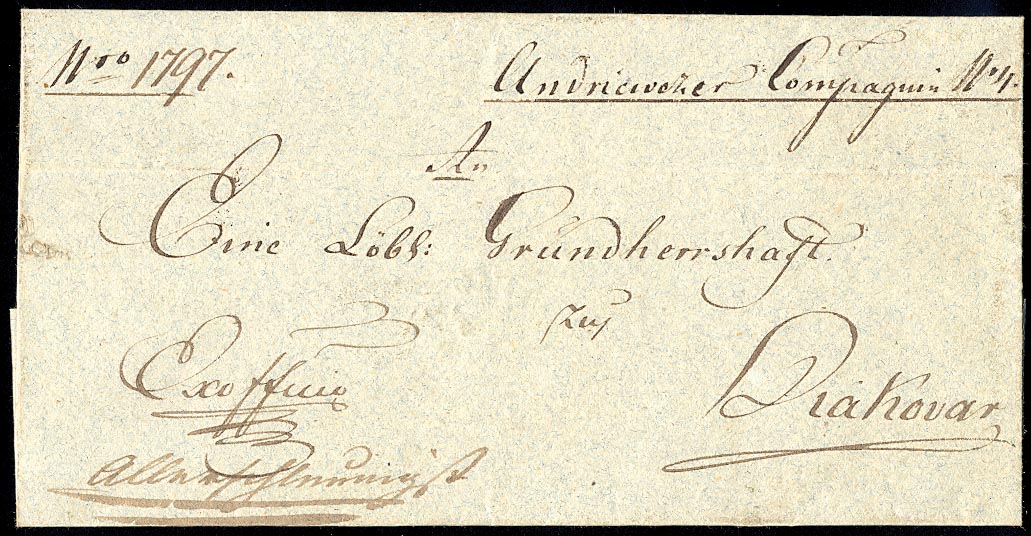 Nro 1797.
Andriewezer Compagnie No 4.
An
Eine Löbl: Grundherrshaft.
zu
Diakovar
Exofficio
Allerschleunigst